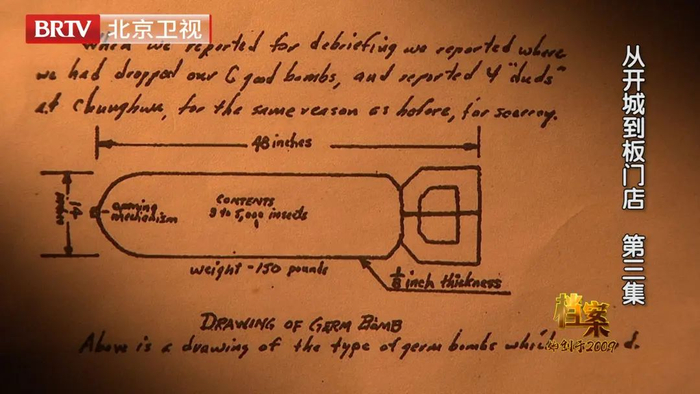 BRTV 北京卫视
When we reported for debriefing we reported where
we had dropped our 6 good bombs, and reported 4 "duds"
at Chunghwa, for the same reason as before, for secrecy.
48 inches
14 inches
arming mechanism
CONTENTS
3 to 5,000 insects
weight - 150 pounds
1/8 inch thickness
DRAWING OF GERM BOMB
Above is a drawing of the type of germ bombs which d.
从开城到板门店 第三集
档案
始创于2009